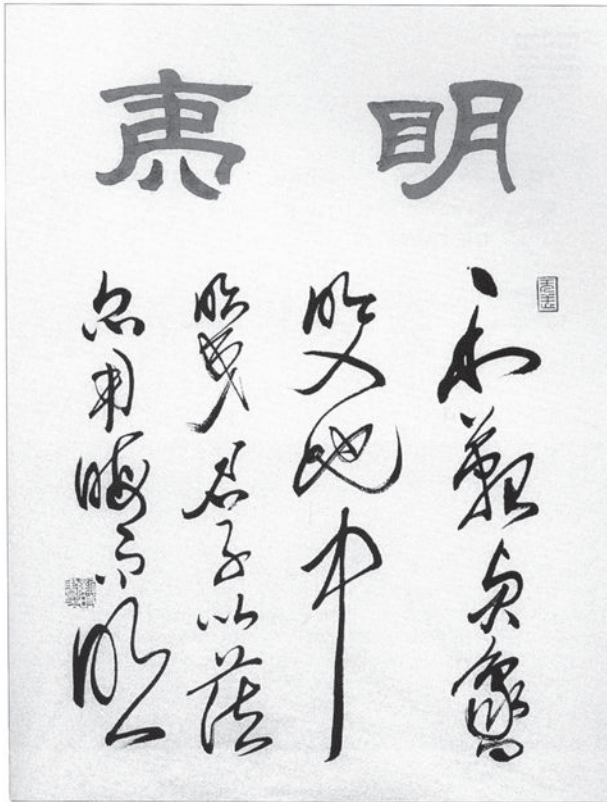 明夷
利艱貞象曰
明入地中
明夷君子以蒞
眾用晦而明